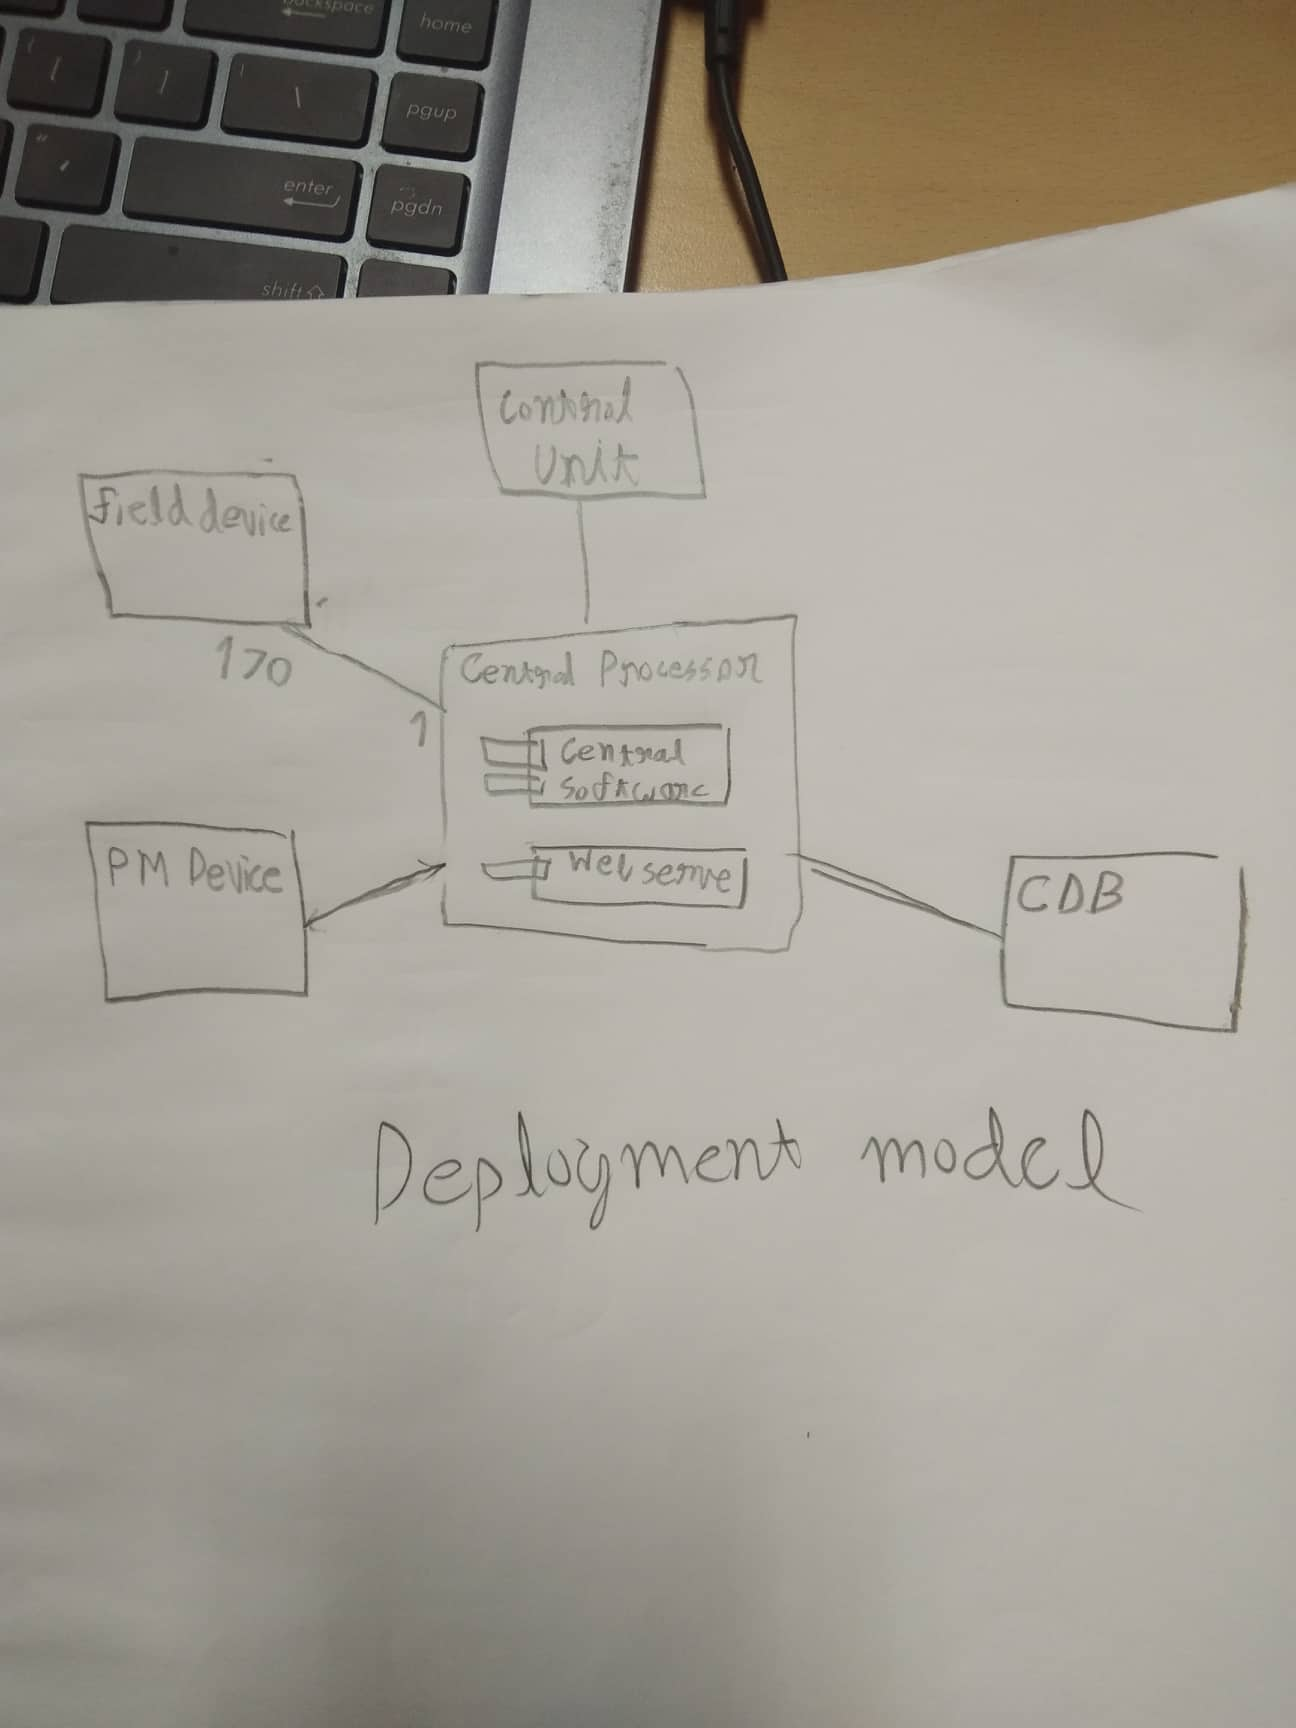 backspace
home
[
]
\
pgup
"
'
enter
pgdn
shift
Control
Unit
Field device
170
1
Central Processor
Central
Software
PM Device
Web serve
CDB
Deployment model